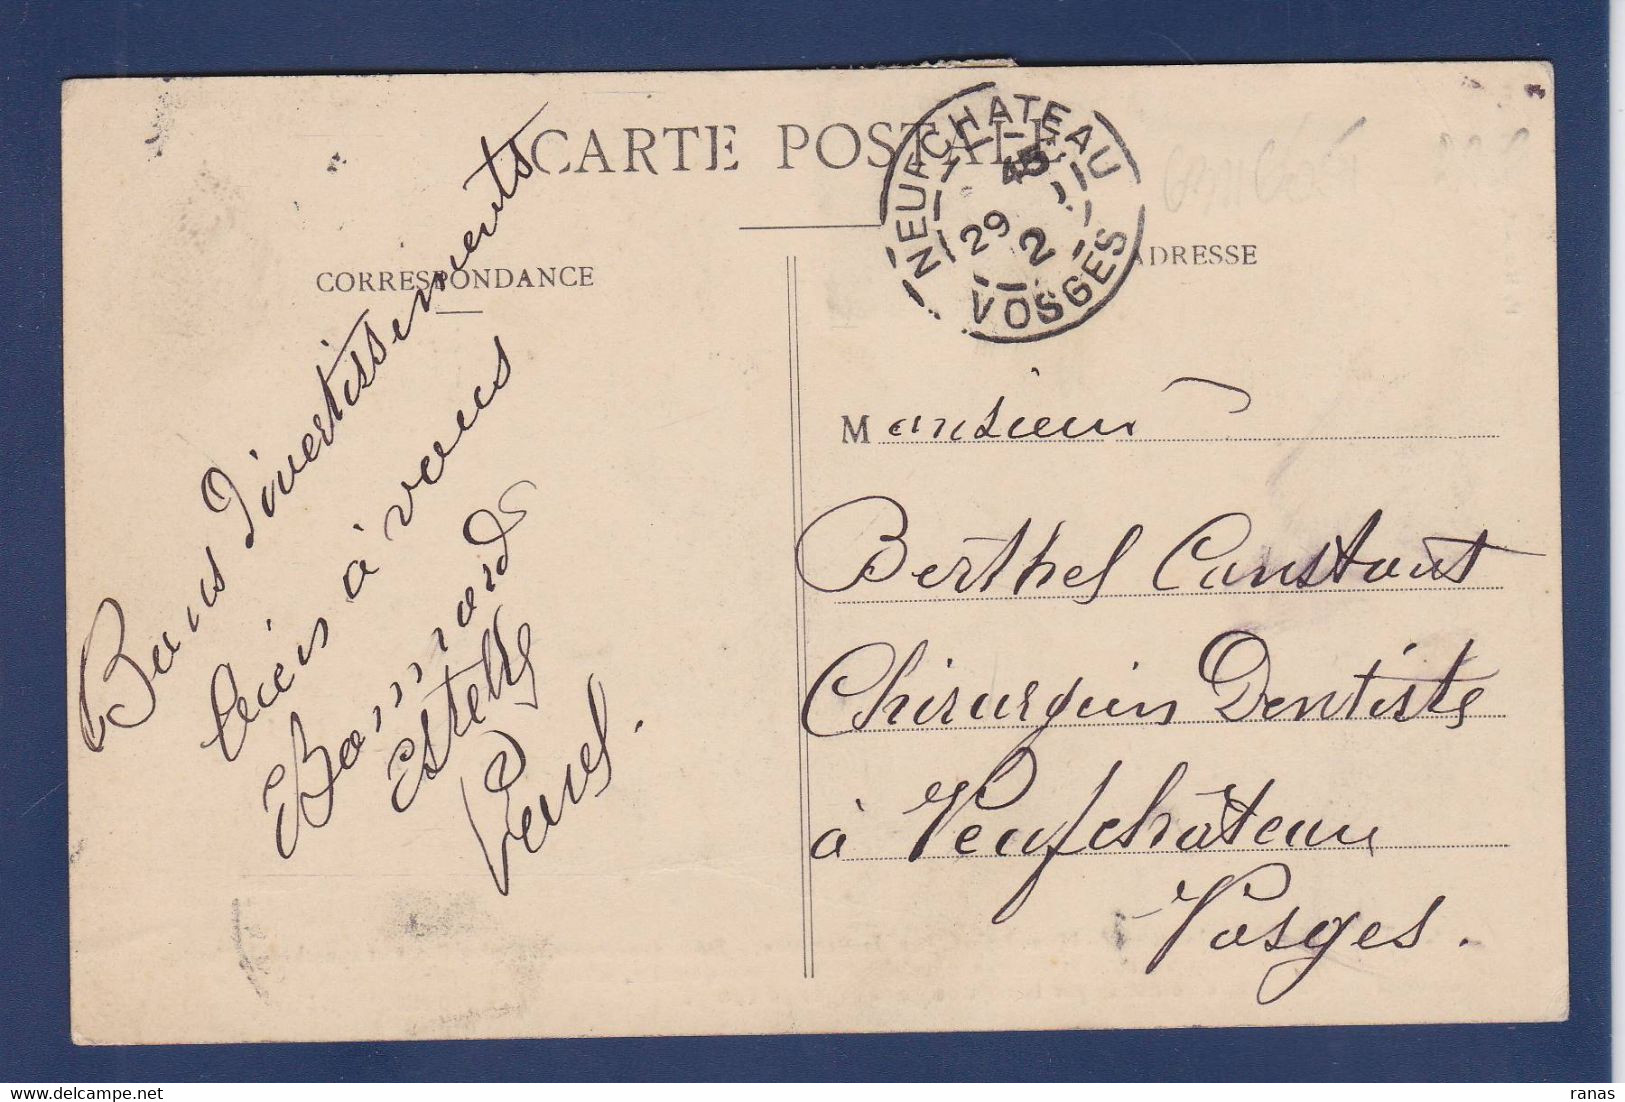 CARTE POSTALE
NEUFCHATEAU
45
29 2
VOSGES
CORRESPONDANCE
ADRESSE
Bons divertissements
à vous
Estelle
Monsieur
Berthel Constant
Chirurgien Dentiste
à Neufchâteau
Vosges.
ranas